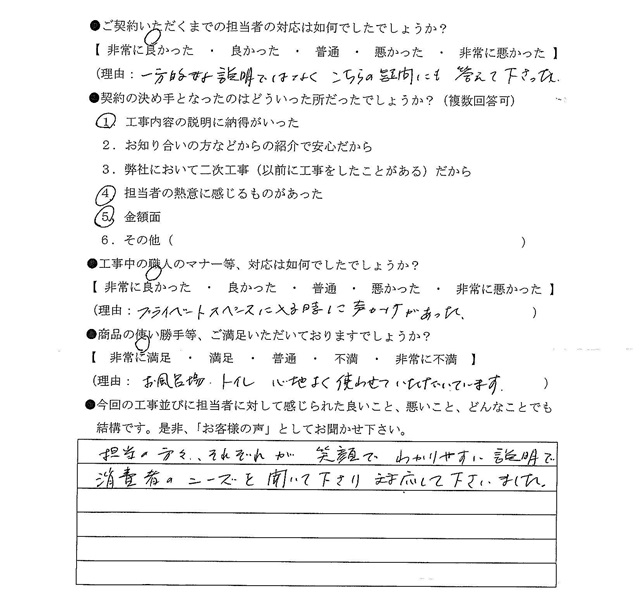 ●ご契約いただくまでの担当者の対応は如何でしたでしょうか？
【 非常に良かった ・ 良かった ・ 普通 ・ 悪かった ・ 非常に悪かった 】
(理由： 一方的な説明ではなく こちらの質問にも 答えて下さった。
●契約の決め手となったのはどういった所だったでしょうか？（複数回答可）
１．工事内容の説明に納得がいった
２．お知り合いの方などからの紹介で安心だから
３．弊社において二次工事（以前に工事をしたことがある）だから
４．担当者の熱意に感じるものがあった
５．金額面
６．その他（ ）
●工事中の職人のマナー等、対応は如何でしたでしょうか？
【 非常に良かった ・ 良かった ・ 普通 ・ 悪かった ・ 非常に悪かった 】
(理由： プライベートスペースに入る時に声かけがあった。 )
●商品の使い勝手等、ご満足いただいておりますでしょうか？
【 非常に満足 ・ 満足 ・ 普通 ・ 不満 ・ 非常に不満 】
(理由： お風呂場・トイレ 心地よく使わせていただいています。 )
●今回の工事並びに担当者に対して感じられた良いこと、悪いこと、どんなことでも
結構です。是非、「お客様の声」としてお聞かせ下さい。
担当の方々、それぞれが 笑顔で わかりやすい説明で
消費者のニーズを 聞いて下さり 対応して下さいました。